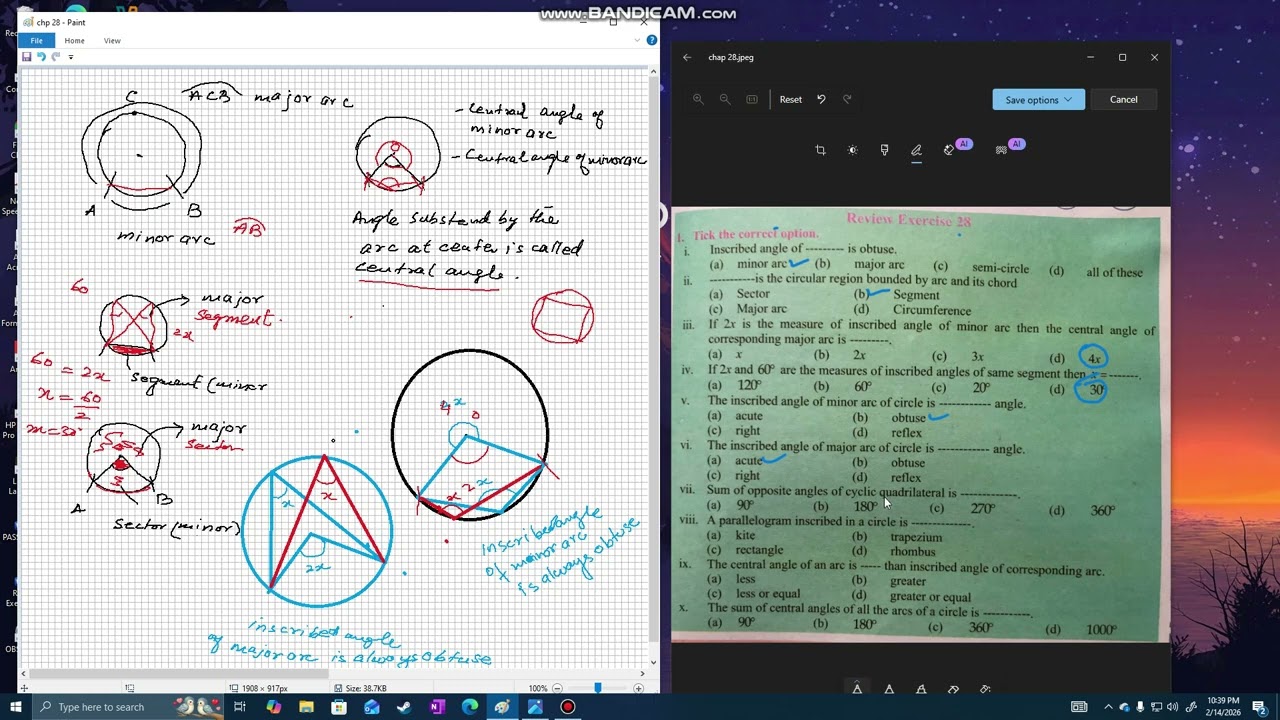 www.BANDICAM.com
chp 28 - Paint
File Home View
C
ACB major arc
A
B
minor arc
AB
- Central angle of
minor arc
- Central angle of minor arc
Angle substend by the
arc at center is called
central angle.
60
major
segment.
2x
60 = 2x
segment (minor
x = 60
2
x = 30°
major
sector
A
B
sector (minor)
x
x
2x
4x
x
2x
inscribed angle
of minor arc
is always obtuse
inscribed angle
of major arc is always obtuse
1908 × 917px
Size: 38.7KB
100%
chap 28.jpeg
Reset
Save options
Cancel
AI
AI
Review Exercise 28
1. Tick the correct option.
i. Inscribed angle of --------- is obtuse.
(a) minor arc (b) major arc (c) semi-circle (d) all of these
ii. -----------is the circular region bounded by arc and its chord
(a) Sector (b) Segment
(c) Major arc (d) Circumference
iii. If 2x is the measure of inscribed angle of minor arc then the central angle of
corresponding major arc is ---------.
(a) x (b) 2x (c) 3x (d) 4x
iv. If 2x and 60° are the measures of inscribed angles of same segment then x = -------.
(a) 120° (b) 60° (c) 20° (d) 30°
v. The inscribed angle of minor arc of circle is ------------ angle.
(a) acute (b) obtuse
(c) right (d) reflex
vi. The inscribed angle of major arc of circle is ------------ angle.
(a) acute (b) obtuse
(c) right (d) reflex
vii. Sum of opposite angles of cyclic quadrilateral is -------------.
(a) 90° (b) 180° (c) 270° (d) 360°
viii. A parallelogram inscribed in a circle is --------------.
(a) kite (b) trapezium
(c) rectangle (d) rhombus
ix. The central angle of an arc is ----- than inscribed angle of corresponding arc.
(a) less (b) greater
(c) less or equal (d) greater or equal
x. The sum of central angles of all the arcs of a circle is -----------.
(a) 90° (b) 180° (c) 360° (d) 1000°
Type here to search
10:39 PM
2/14/2026